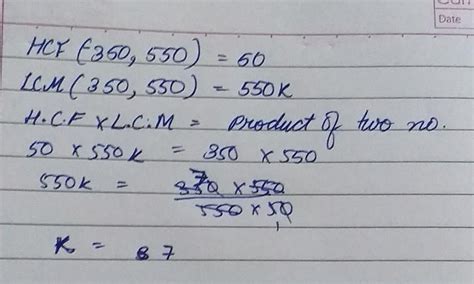 Date
HCF (350, 550) = 50
LCM (350, 550) = 550K
H.C.F x L.C.M = Product of two no.
50 x 550k = 350 x 550
550k = 350 x 550
7
550 x 50
1
K = 87